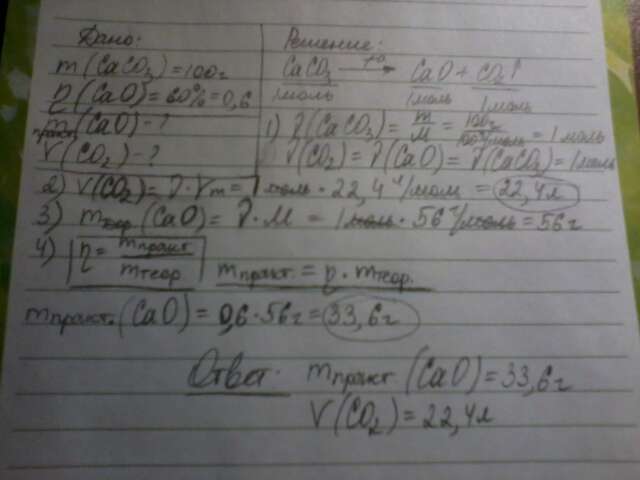 Дано:
m(CaCO3)=100г
η(CaO)=60%=0,6
m практ.(CaO)-?
V(CO2)-?
Решение:
CaCO3 —t°→ CaO + CO2↑
1моль 1моль 1моль
1) ν(CaCO3)= m/M = 100г/100г/моль = 1моль
ν(CO2)=ν(CaO)=ν(CaCO3)=1моль
2) V(CO2)=ν·Vm=1моль·22,4 л/моль=22,4л
3) mтеор.(CaO)=ν·M=1моль·56г/моль=56г
4) η= mпракт/mтеор. mпракт.=η·mтеор.
mпракт.(CaO)=0,6·56г=33,6г
Ответ: mпракт.(CaO)=33,6г
V(CO2)=22,4л